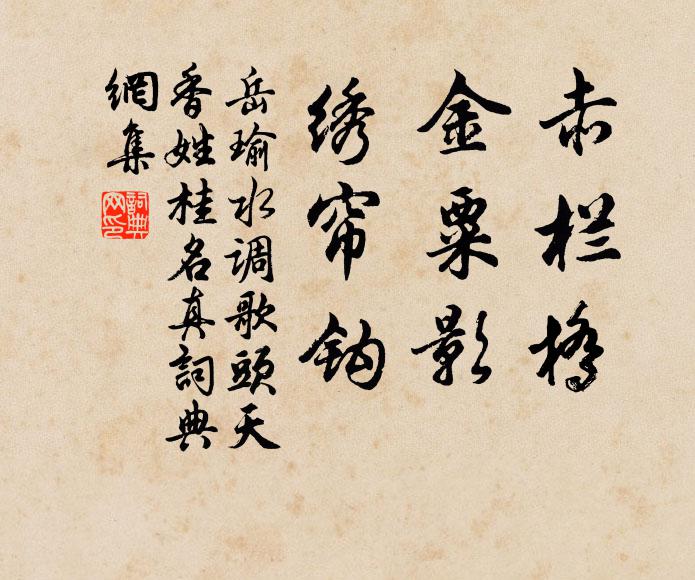 赤栏橋
金粟影
绣帘钩
岳瑜水调歌頭天
香姓桂名真詞典
網集
詞典网印